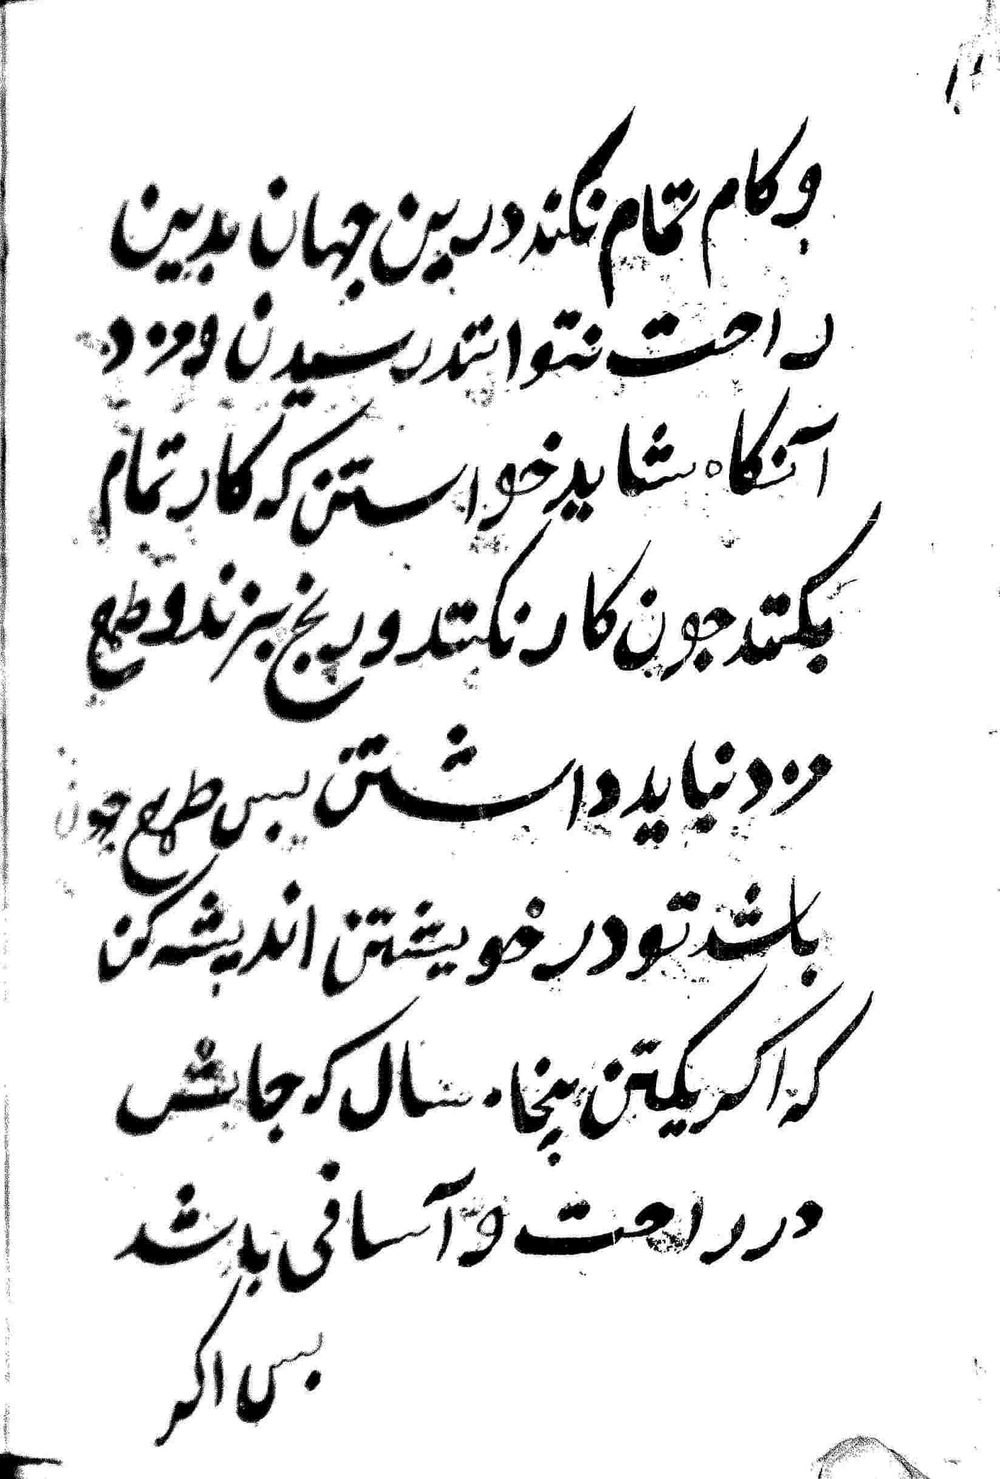 و کام تمام نکند درین جهان بدین
راحت نتوانند رسیدن و مزد
آنکاه شاید خواستن که کار تمام
بکنند جون کار نکنند و رنج نبرند و طمع
مزد نباید داشتن بس طمع جون
باشد تو در خویشتن اندیشه کن
که اکر یکتن پنجاه سال که جایش
در راحت و آسانی باشد
بس اکر